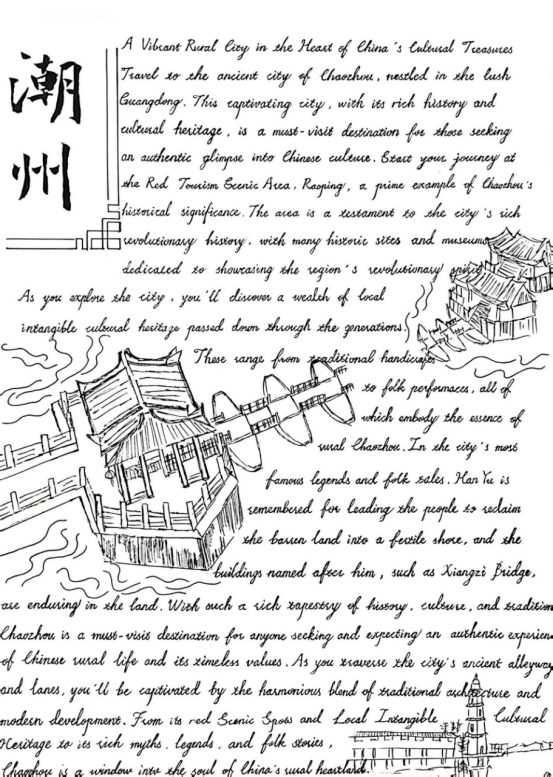 潮州
A Vibrant Rural City in the Heart of China's Cultural Treasures
Travel to the ancient city of Chaozhou, nestled in the lush
Guangdong. This captivating city, with its rich history and
cultural heritage, is a must-visit destination for those seeking
an authentic glimpse into Chinese culture. Start your journey at
the Red Tourism Scenic Area, Raoping, a prime example of Chaozhou's
historical significance. The area is a testament to the city's rich
revolutionary history, with many historic sites and museums
dedicated to showcasing the region's revolutionary spirit
As you explore the city, you'll discover a wealth of local
intangible cultural heritage passed down through the generations.
These range from traditional handicrafts
to folk performaces, all of
which embody the essence of
rural Chaozhou. In the city's most
famous legends and folk tales. Han Yu is
remembered for leading the people to reclaim
the barren land into a fertile shore, and the
buildings named after him, such as Xiangzi Bridge,
are enduring in the land. With such a rich tapestry of history, culture, and tradition
Chaozhou is a must-visit destination for anyone seeking and expecting an authentic experien
of Chinese rural life and its timeless values. As you traverse the city's ancient alleyway
and lanes, you'll be captivated by the harmonious blend of traditional architecture and
modern development. From its red Scenic Spots and Local Intangible Cultural
Heritage to its rich myths, legends, and folk stories,
Chaozhou is a window into the soul of China's rural heartland.